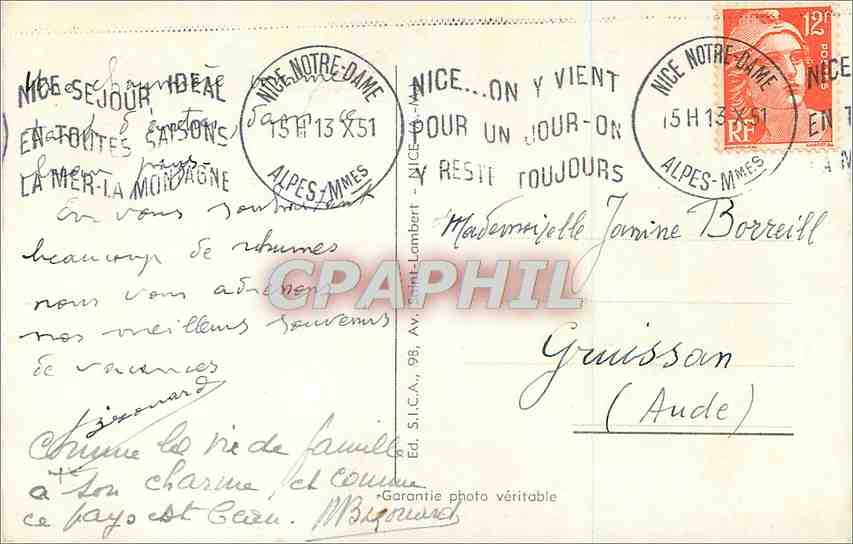 NICE SEJOUR IDEAL
EN TOUTES SAISONS
LA MER-LA MONTAGNE
NICE NOTRE-DAME
15H13 X.51
ALPES-MMES
NICE...ON Y VIENT
POUR UN JOUR-ON
Y RESTE TOUJOURS
NICE NOTRE-DAME
15H13 X.51
ALPES-MMES
12F
POSTES
RF
NICE
EN T
LA M
pays
En vous souhaitant
beaucoup de rhumes
nous vous adressons
nos meilleurs souvenirs
de vacances
Bigouard
Comme la vie de famille
a son charme, et comme
ce pays est beau. MBigouard
Ed. S.I.C.A., 98, Av. Saint-Lambert - NICE-(A.-M.)
Mademoiselle Janine Borreill
Gruissan
(Aude)
Garantie photo véritable
CPAPHIL